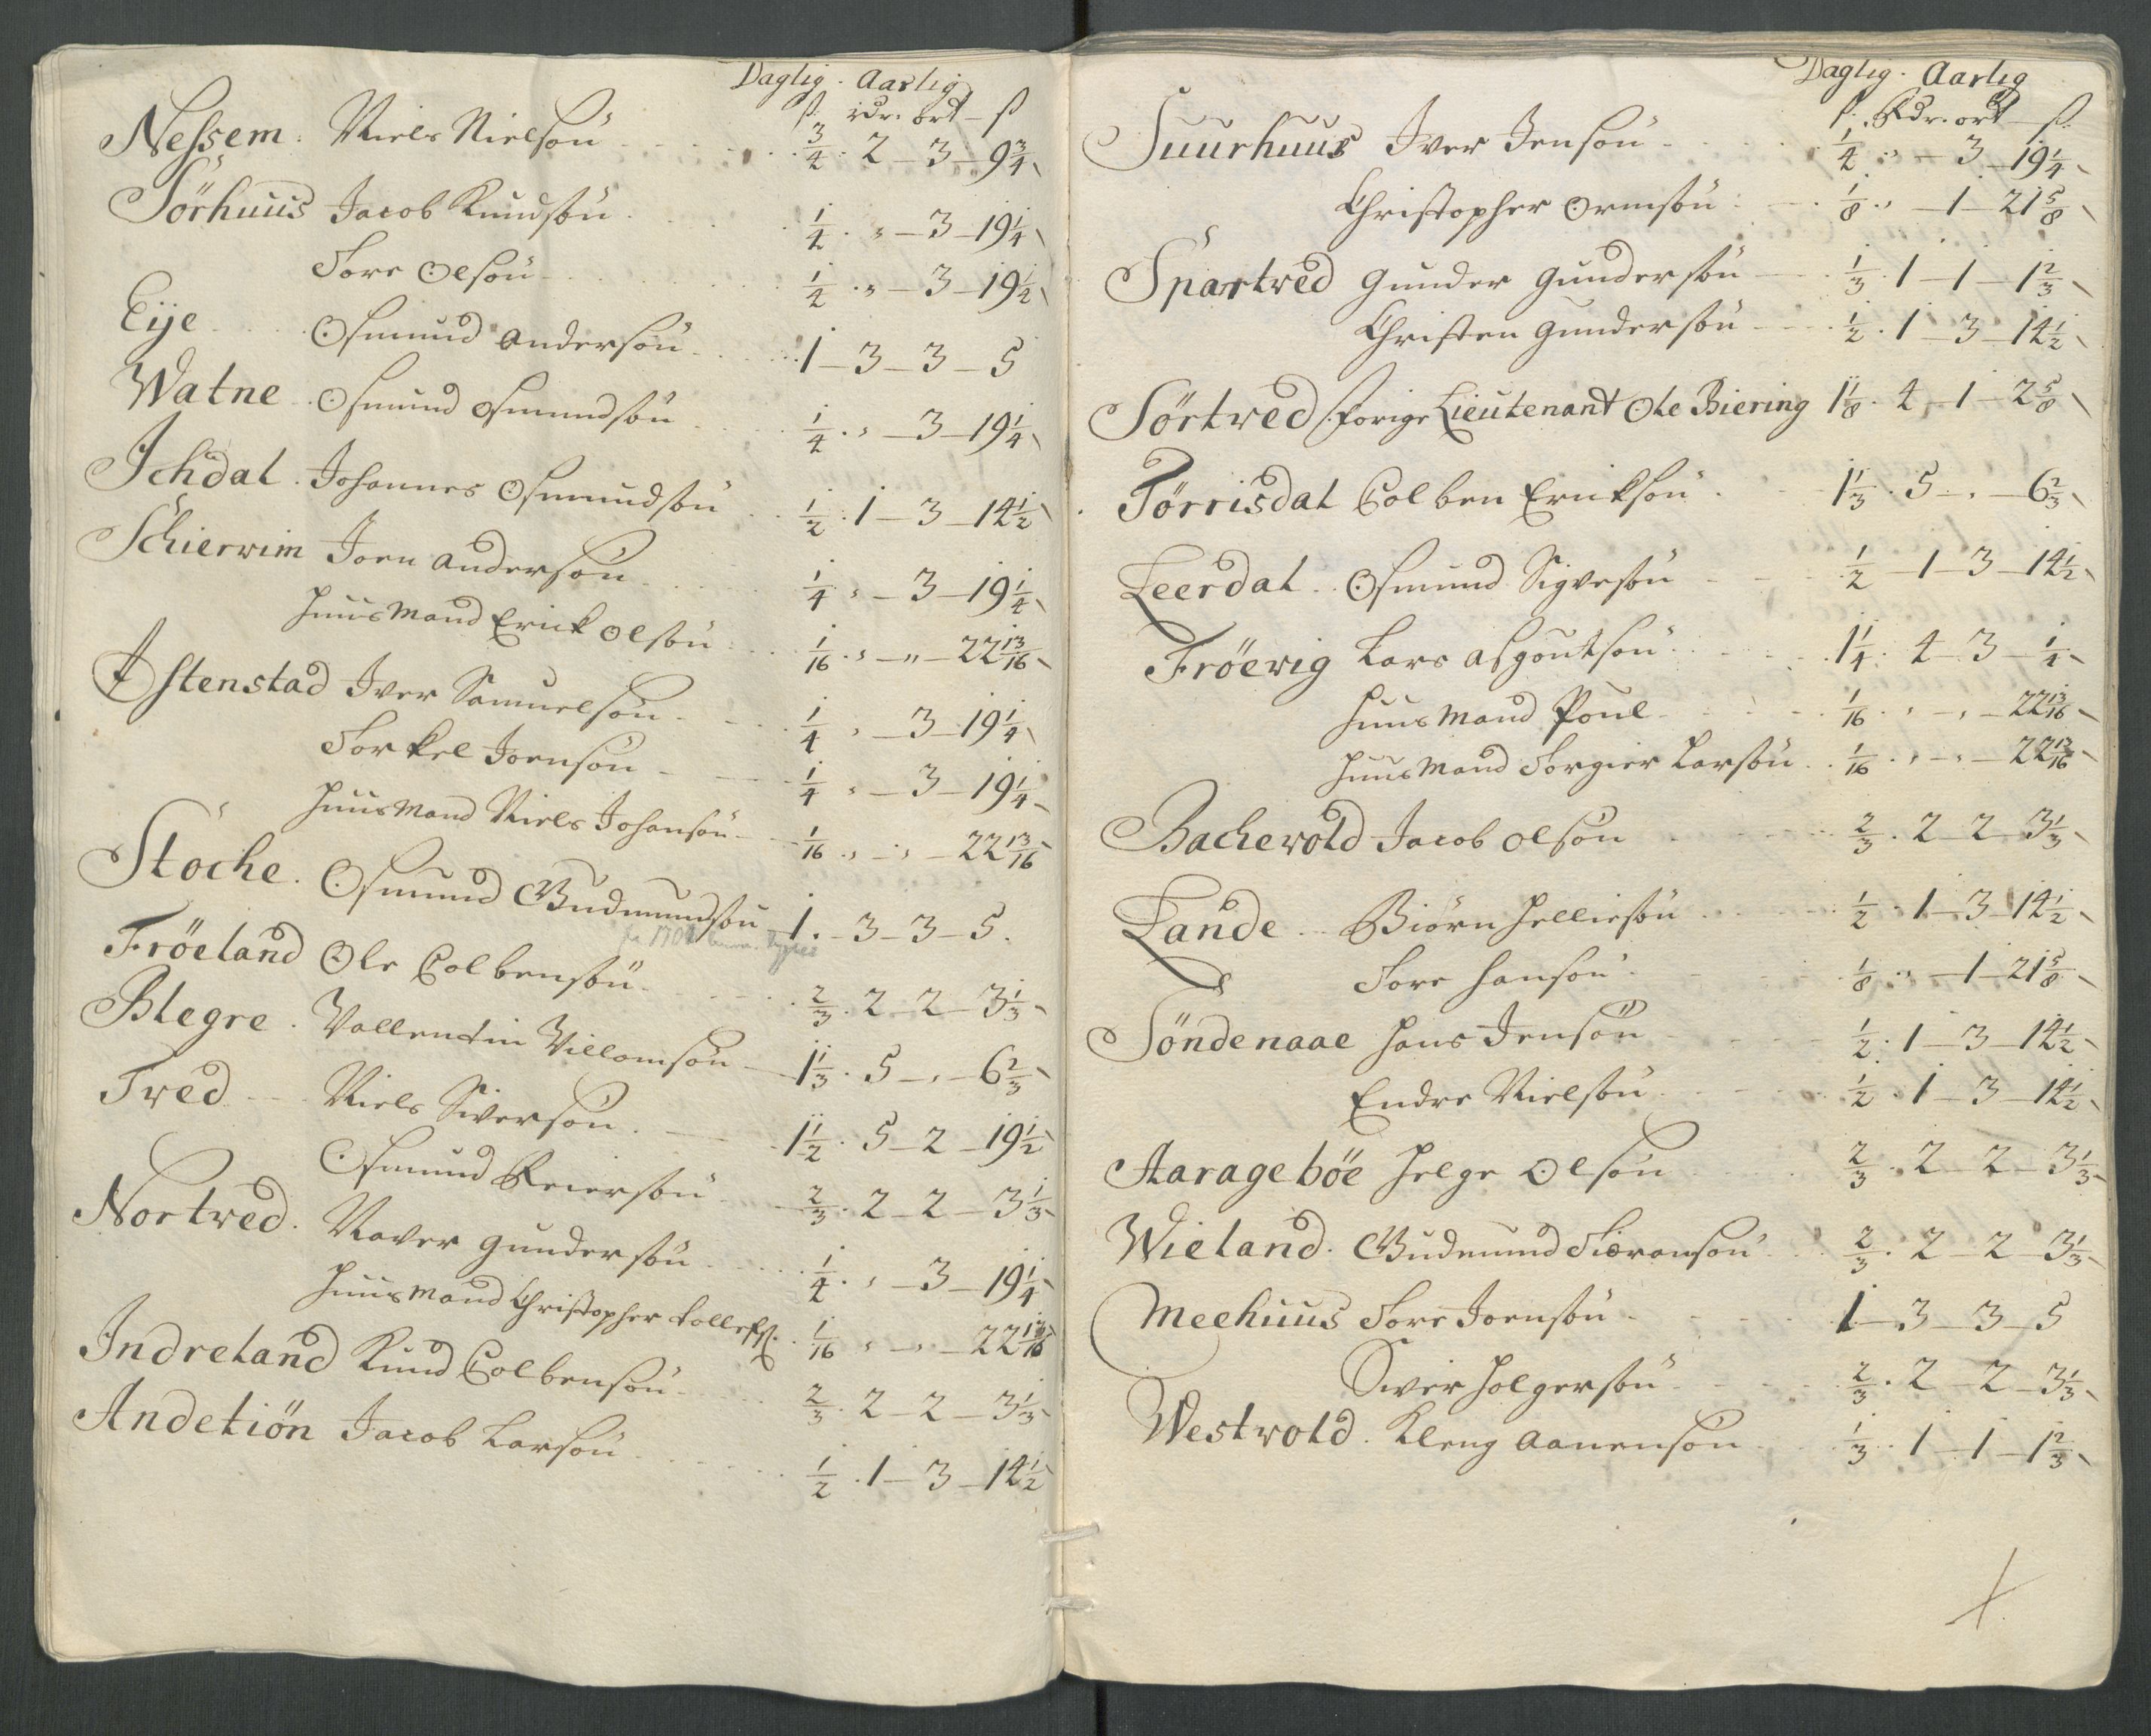 Daglig. Aarlig
ß. rdr. ort – ß
Nessem. Niels Nielsön 3/4. 2 – 3 – 9 3/4
Sörhuus Jacob Knudsön 1/4. " – 3 – 19 1/4
Tore Olsön 1/4. " – 3 – 19 1/4
Eije Osmund Andersön 1 – 3 – 3 – 5
Watne Osmund Osmundsön 1/4. " – 3 – 19 1/4
Ichdal. Johannes Osmundsön 1/2. 1 – 3 – 14 1/2
Schierwim Joen Andersön 1/4 " – 3 – 19 1/4
Huusmand Erick Olsön 1/16. " – " – 22 13/16
Astenstad Iver Samuelsön 1/4 " – 3 – 19 1/4
Torkel Joensön 1/4 " – 3 – 19 1/4
Huusmand Niels Johansön 1/16. " – " – 22 13/16
Stoche. Osmund Gudmundsön 1. – 3 – 3 – 5.
Fröeland Ole Colbensön 2/3. 2 – 2 – 3 1/3
Blegre. Vallentin Villomsön 1 1/3. 5 – " – 6 2/3
Tved Niels Siversön. 1 1/2. 5 – 2 – 19 1/2
Osmund Reiersön 2/3. 2 – 2 – 3 1/3
Nortved. Naver Gundersön 1/4. " – 3 – 19 1/4
Huusmand Christopher Tollefs. 1/16 " – " – 22 13/16
Indreland Knud Colbensön 2/3. 2 – 2 – 3 1/3
Andetiön Jacob Larsön 1/2. 1 – 3 – 14 1/2
Daglig. Aarlig
ß. Rdr. ort – ß.
Suurhuus Iver Jensön 1/4 " – 3 – 19 1/4
Christopher Ormsön 1/8 " – 1 – 21 5/8
Spartved Gunder Gundersön 1/3. 1 – 1 – 1 2/3
Christen Gundersön 1/2. 1 – 3 – 14 1/2
Sörtved forige Lieutenant Ole Biering 1 1/8. 4 – 1 – 2 5/8
Törrisdal Colben Ericksön 1 1/3. 5 – " – 6 2/3
Leerdal. Osmund Sigvesön 1/2 – 1 – 3 – 14 1/2
Fröevig Lars Asgoutsön 1 1/4. 4 – 3 – 1/4
Huusmand Poul 1/16. " – " – 22 13/16
Huusmand Torgier Larsön 1/16. " – " – 22 13/16
Bachevold Jacob Olsön 2/3. 2 – 2 – 3 1/3
Lande Biörn Helliesön 1/2. 1 – 3 – 14 1/2
Tore Hansön 1/8 " – 1 – 21 5/8
Söndenaae Hans Jensön 1/2. 1 – 3 – 14 1/2
Endre Nielsön 1/2. 1 – 3 – 14 1/2
Aarageböe Helge Olsön 2/3. 2 – 2 – 3 1/3
Wieland. Gudmund 2/3. 2 – 2 – 3 1/3
Meehuus Tore Joensön 1 – 3 – 3 – 5
Siver Holgersön 2/3. 2 – 2 – 3 1/3
Westvold. Kleng Aanensön 1/3. 1 – 1 – 1 2/3